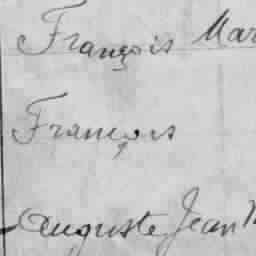 François Mar
François
Auguste Jean